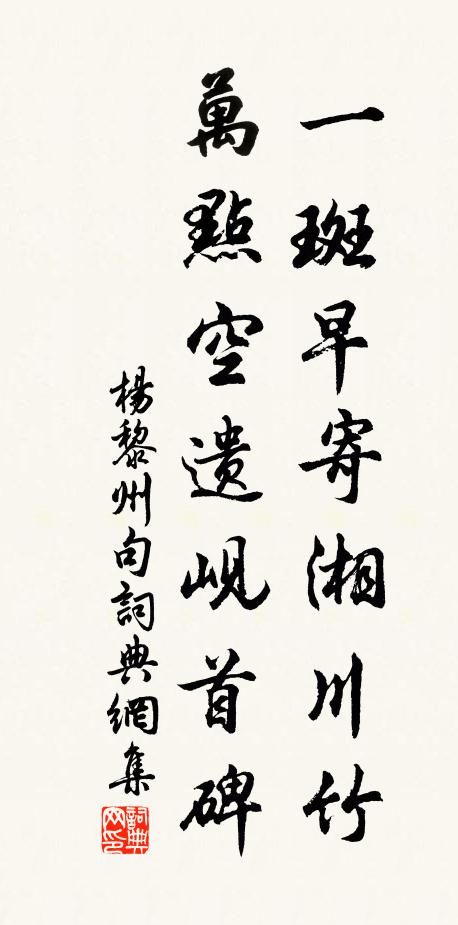 一斑早寄湘川竹
萬點空遺峴首碑
楊黎州句詞典網集
詞典网印